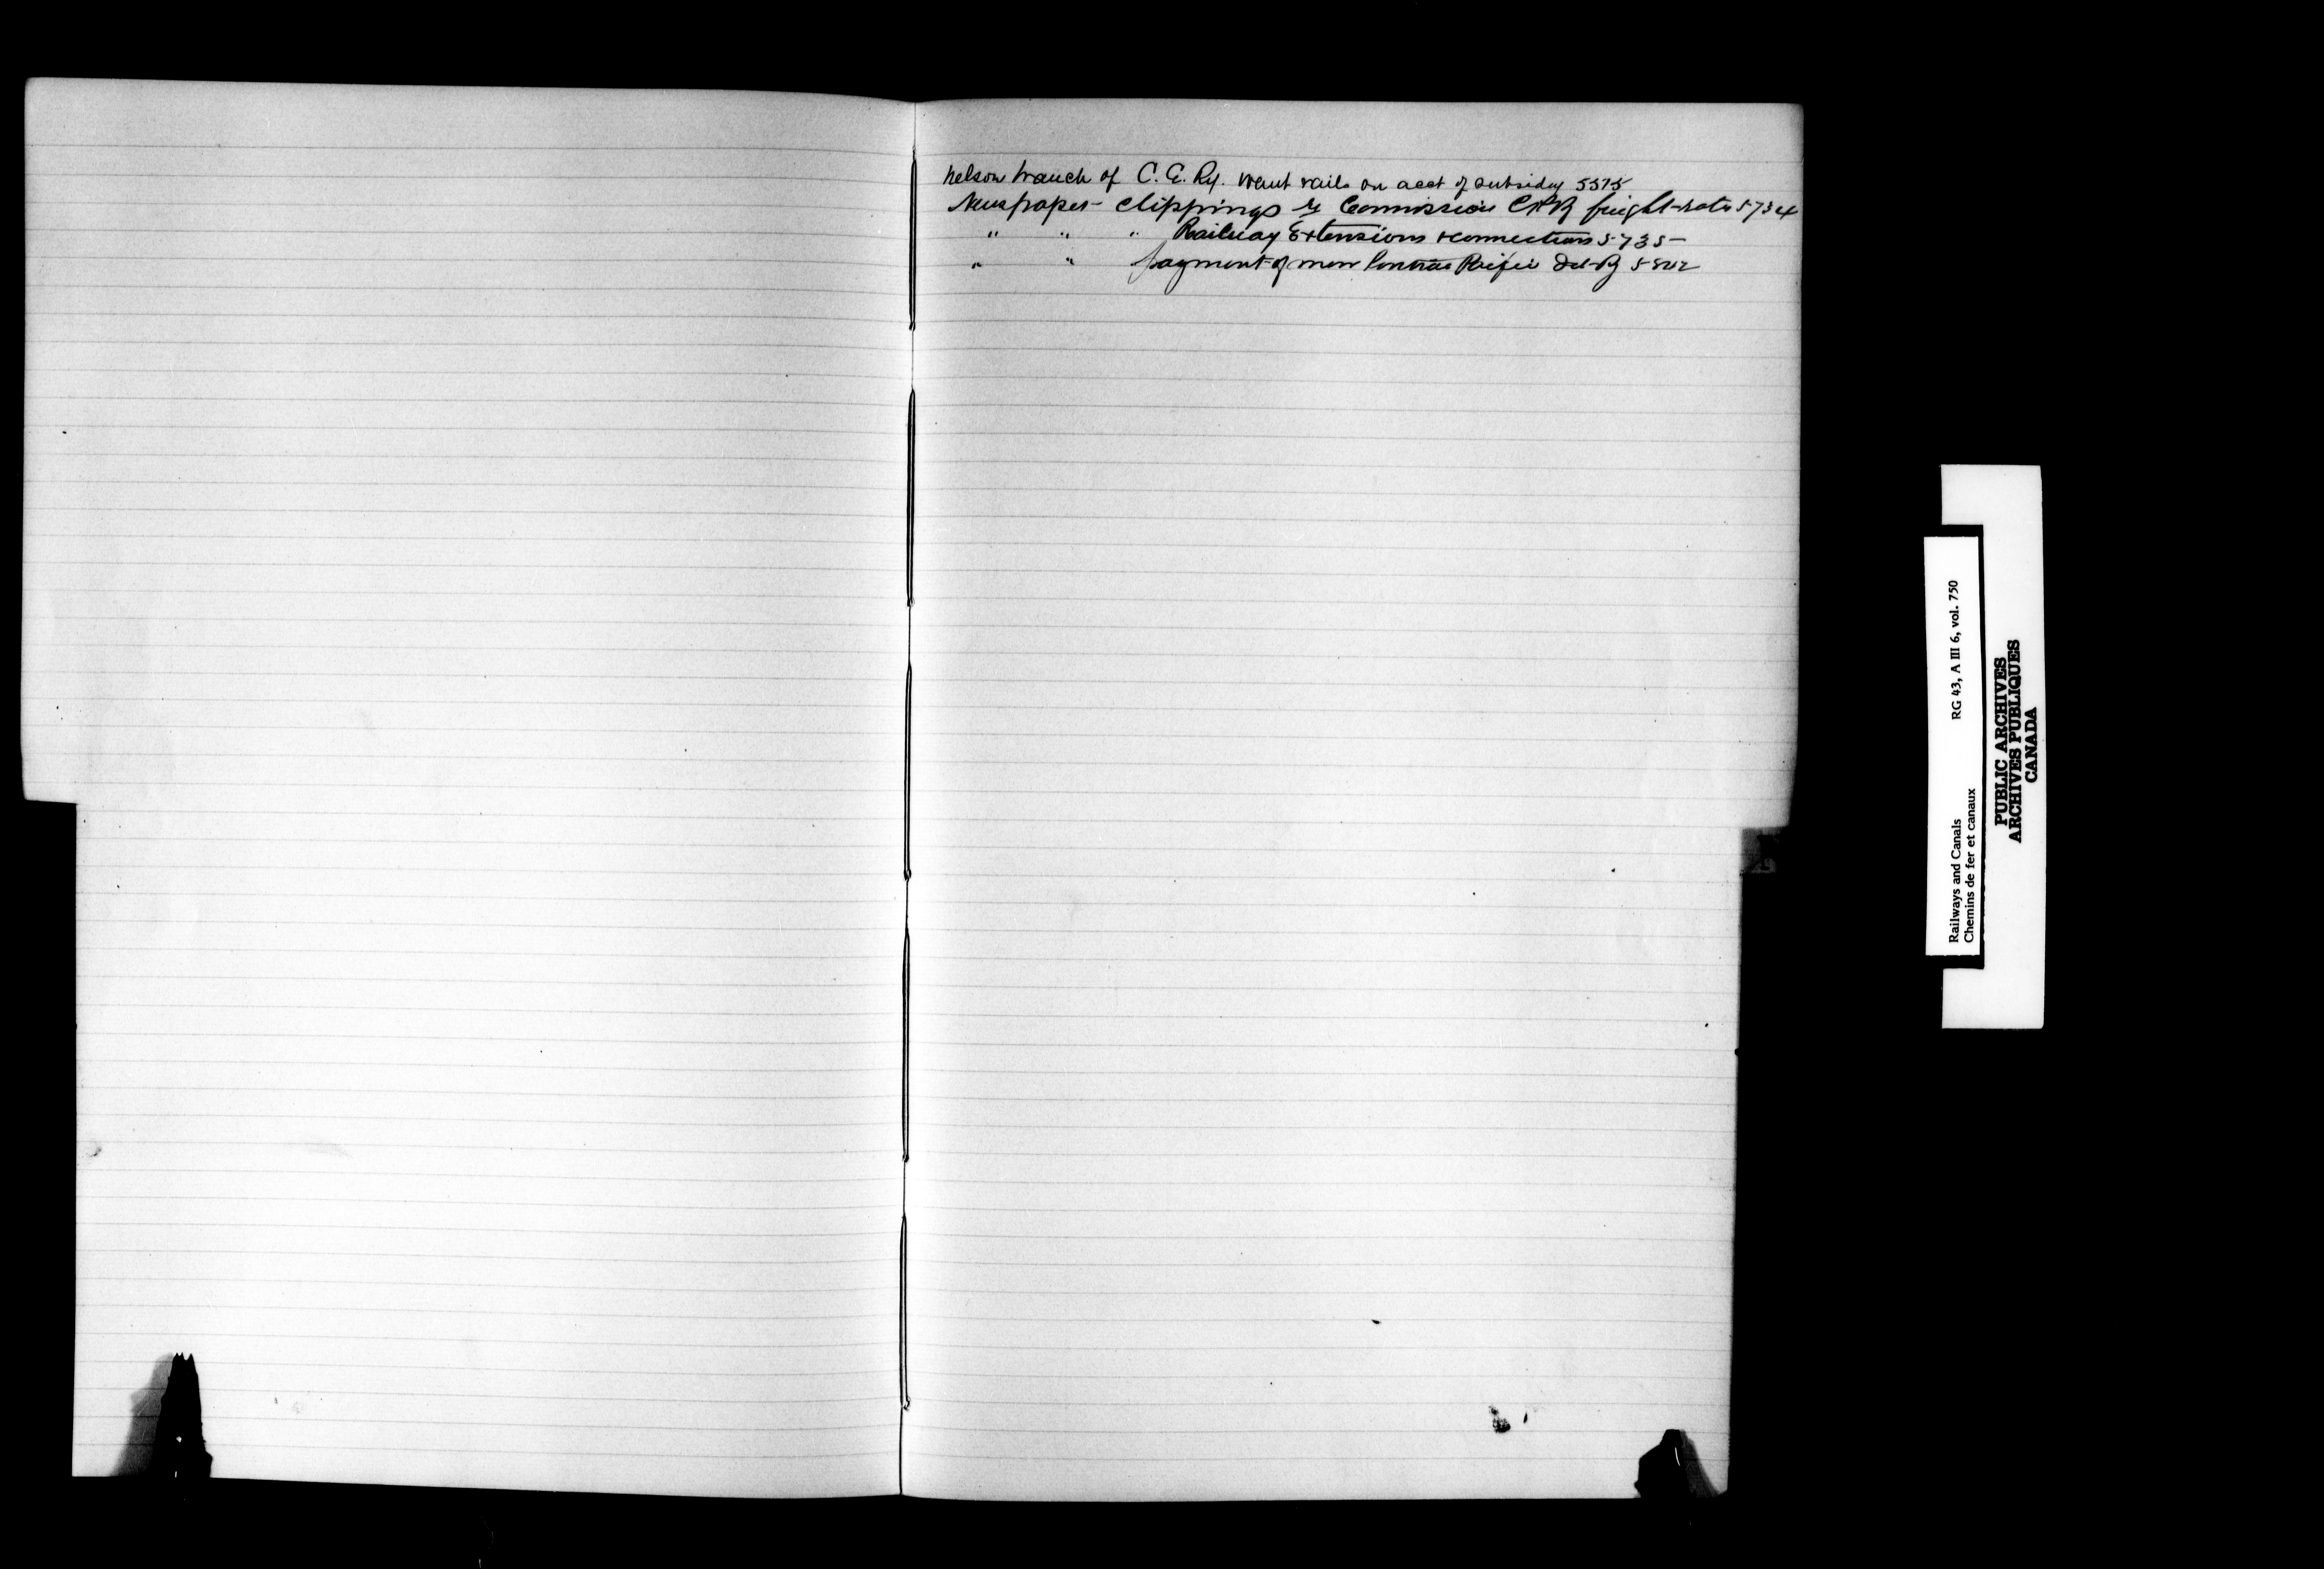 Nelson branch of C. E. Ry. want rails on acct of subsidy 5575
Newspaper clippings re Commission CPR freight rates 5734
" " " Railway Extensions & connections 5735
" " payment of men Pontiac Pacific
Railways and Canals RG 43, A III 6, vol. 750
Chemins de fer et canaux
PUBLIC ARCHIVES
ARCHIVES PUBLIQUES
CANADA